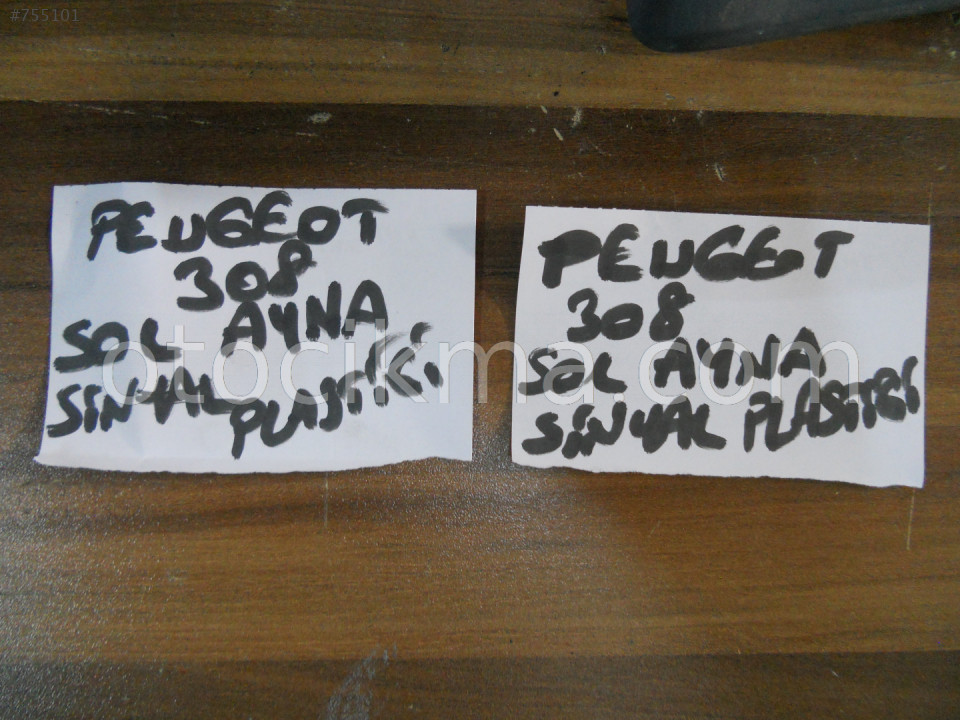 #755101
PEUGEOT
308
SOL AYNA
SİNYAL PLASTİKİ
PEUGEOT
308
SOL AYNA
SİNYAL PLASİTRİ
otocikma.com